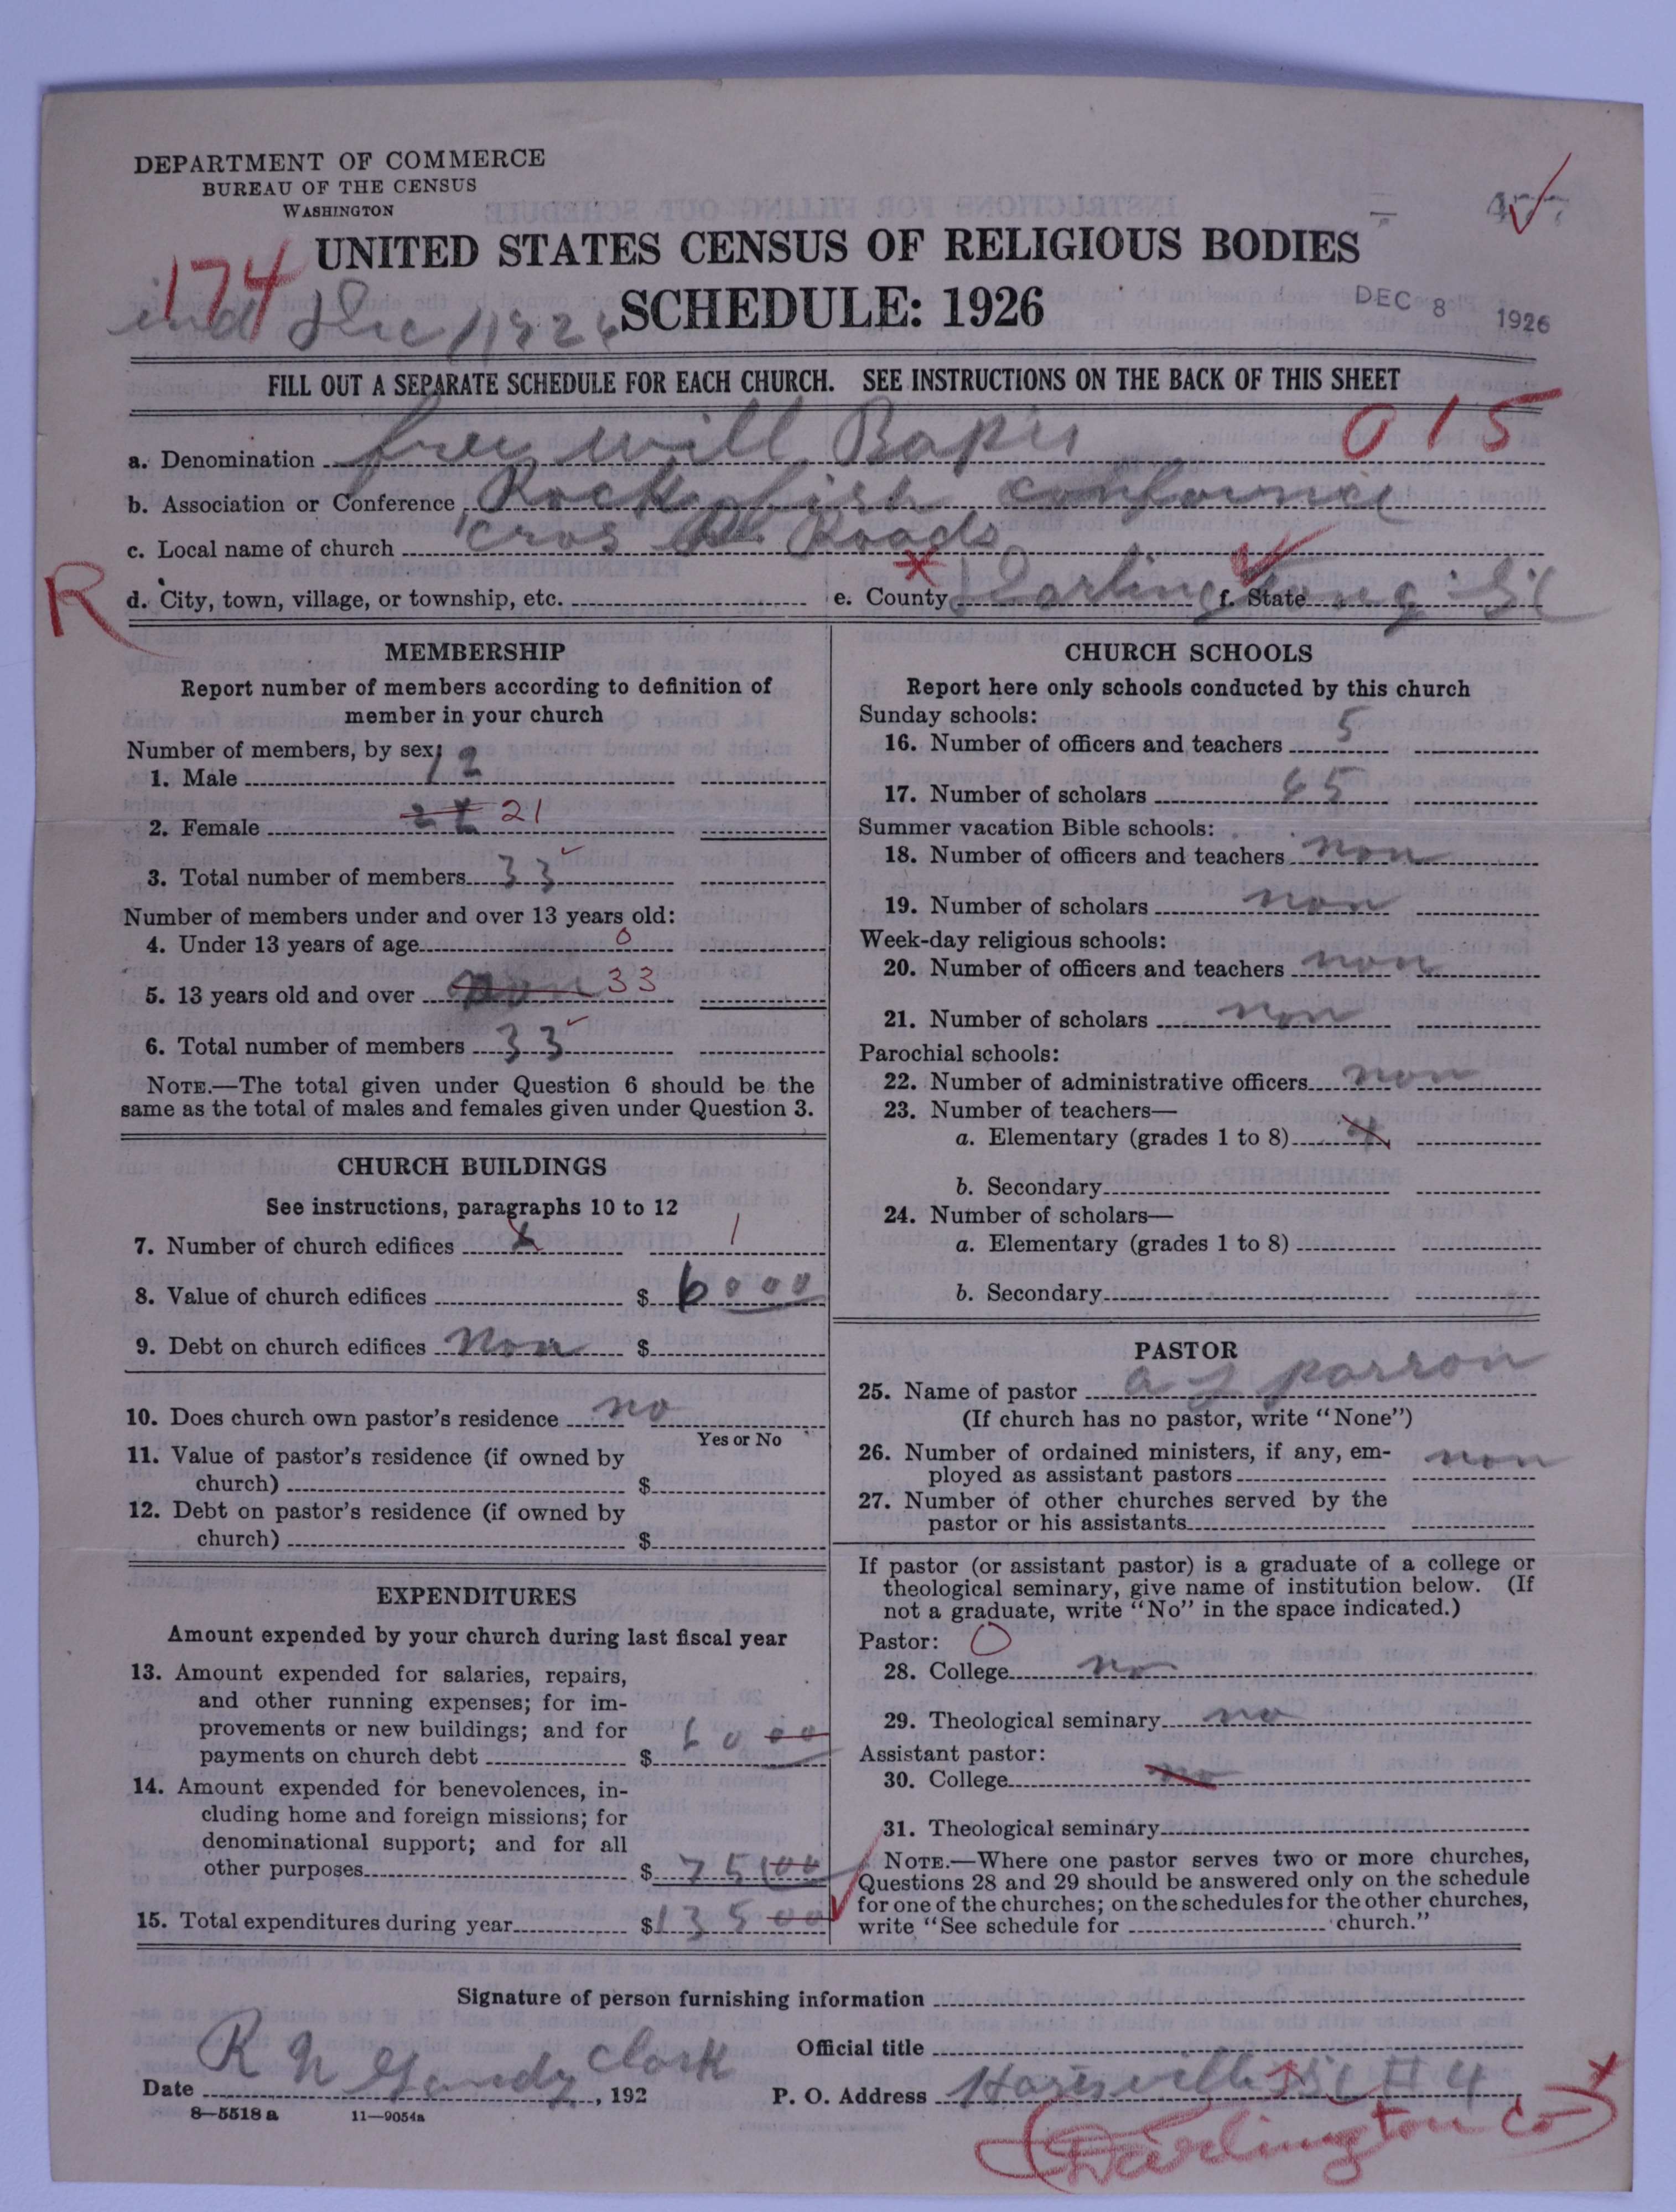 DEPARTMENT OF COMMERCE
BUREAU OF THE CENSUS
WASHINGTON
UNITED STATES CENSUS OF RELIGIOUS BODIES
174
SCHEDULE: 1926
DEC 8 1926
FILL OUT A SEPARATE SCHEDULE FOR EACH CHURCH. SEE INSTRUCTIONS ON THE BACK OF THIS SHEET
015
a. Denomination free will Bapis
b. Association or Conference Rock fish conference
c. Local name of church cros Roads
R
d. City, town, village, or township, etc. e. County Darlington f. State S C
MEMBERSHIP
Report number of members according to definition of
member in your church
Number of members, by sex:
1. Male 12
2. Female 21
3. Total number of members 33
Number of members under and over 13 years old:
4. Under 13 years of age 0
5. 13 years old and over non 33
6. Total number of members 33
NOTE.—The total given under Question 6 should be the
same as the total of males and females given under Question 3.
CHURCH BUILDINGS
See instructions, paragraphs 10 to 12
7. Number of church edifices 1
8. Value of church edifices $ 6000
9. Debt on church edifices Non $
10. Does church own pastor's residence no
Yes or No
11. Value of pastor's residence (if owned by
church) $
12. Debt on pastor's residence (if owned by
church) $
EXPENDITURES
Amount expended by your church during last fiscal year
13. Amount expended for salaries, repairs,
and other running expenses; for im-
provements or new buildings; and for
payments on church debt $ 60 00
14. Amount expended for benevolences, in-
cluding home and foreign missions; for
denominational support; and for all
other purposes $ 75 00
15. Total expenditures during year $135 00
CHURCH SCHOOLS
Report here only schools conducted by this church
Sunday schools:
16. Number of officers and teachers 5
17. Number of scholars 65
Summer vacation Bible schools:
18. Number of officers and teachers non
19. Number of scholars non
Week-day religious schools:
20. Number of officers and teachers non
21. Number of scholars non
Parochial schools:
22. Number of administrative officers non
23. Number of teachers—
a. Elementary (grades 1 to 8)
b. Secondary
24. Number of scholars—
a. Elementary (grades 1 to 8)
b. Secondary
PASTOR
25. Name of pastor a J parron
(If church has no pastor, write "None")
26. Number of ordained ministers, if any, em-
ployed as assistant pastors non
27. Number of other churches served by the
pastor or his assistants
If pastor (or assistant pastor) is a graduate of a college or
theological seminary, give name of institution below. (If
not a graduate, write "No" in the space indicated.)
Pastor: O
28. College no
29. Theological seminary no
Assistant pastor:
30. College no
31. Theological seminary
NOTE.—Where one pastor serves two or more churches,
Questions 28 and 29 should be answered only on the schedule
for one of the churches; on the schedules for the other churches,
write "See schedule for church."
Signature of person furnishing information
R N Gandy Clark
Official title
Date , 192 P. O. Address Harisville SC # 4
8—5518 a 11—9054a
(Darlington Co)